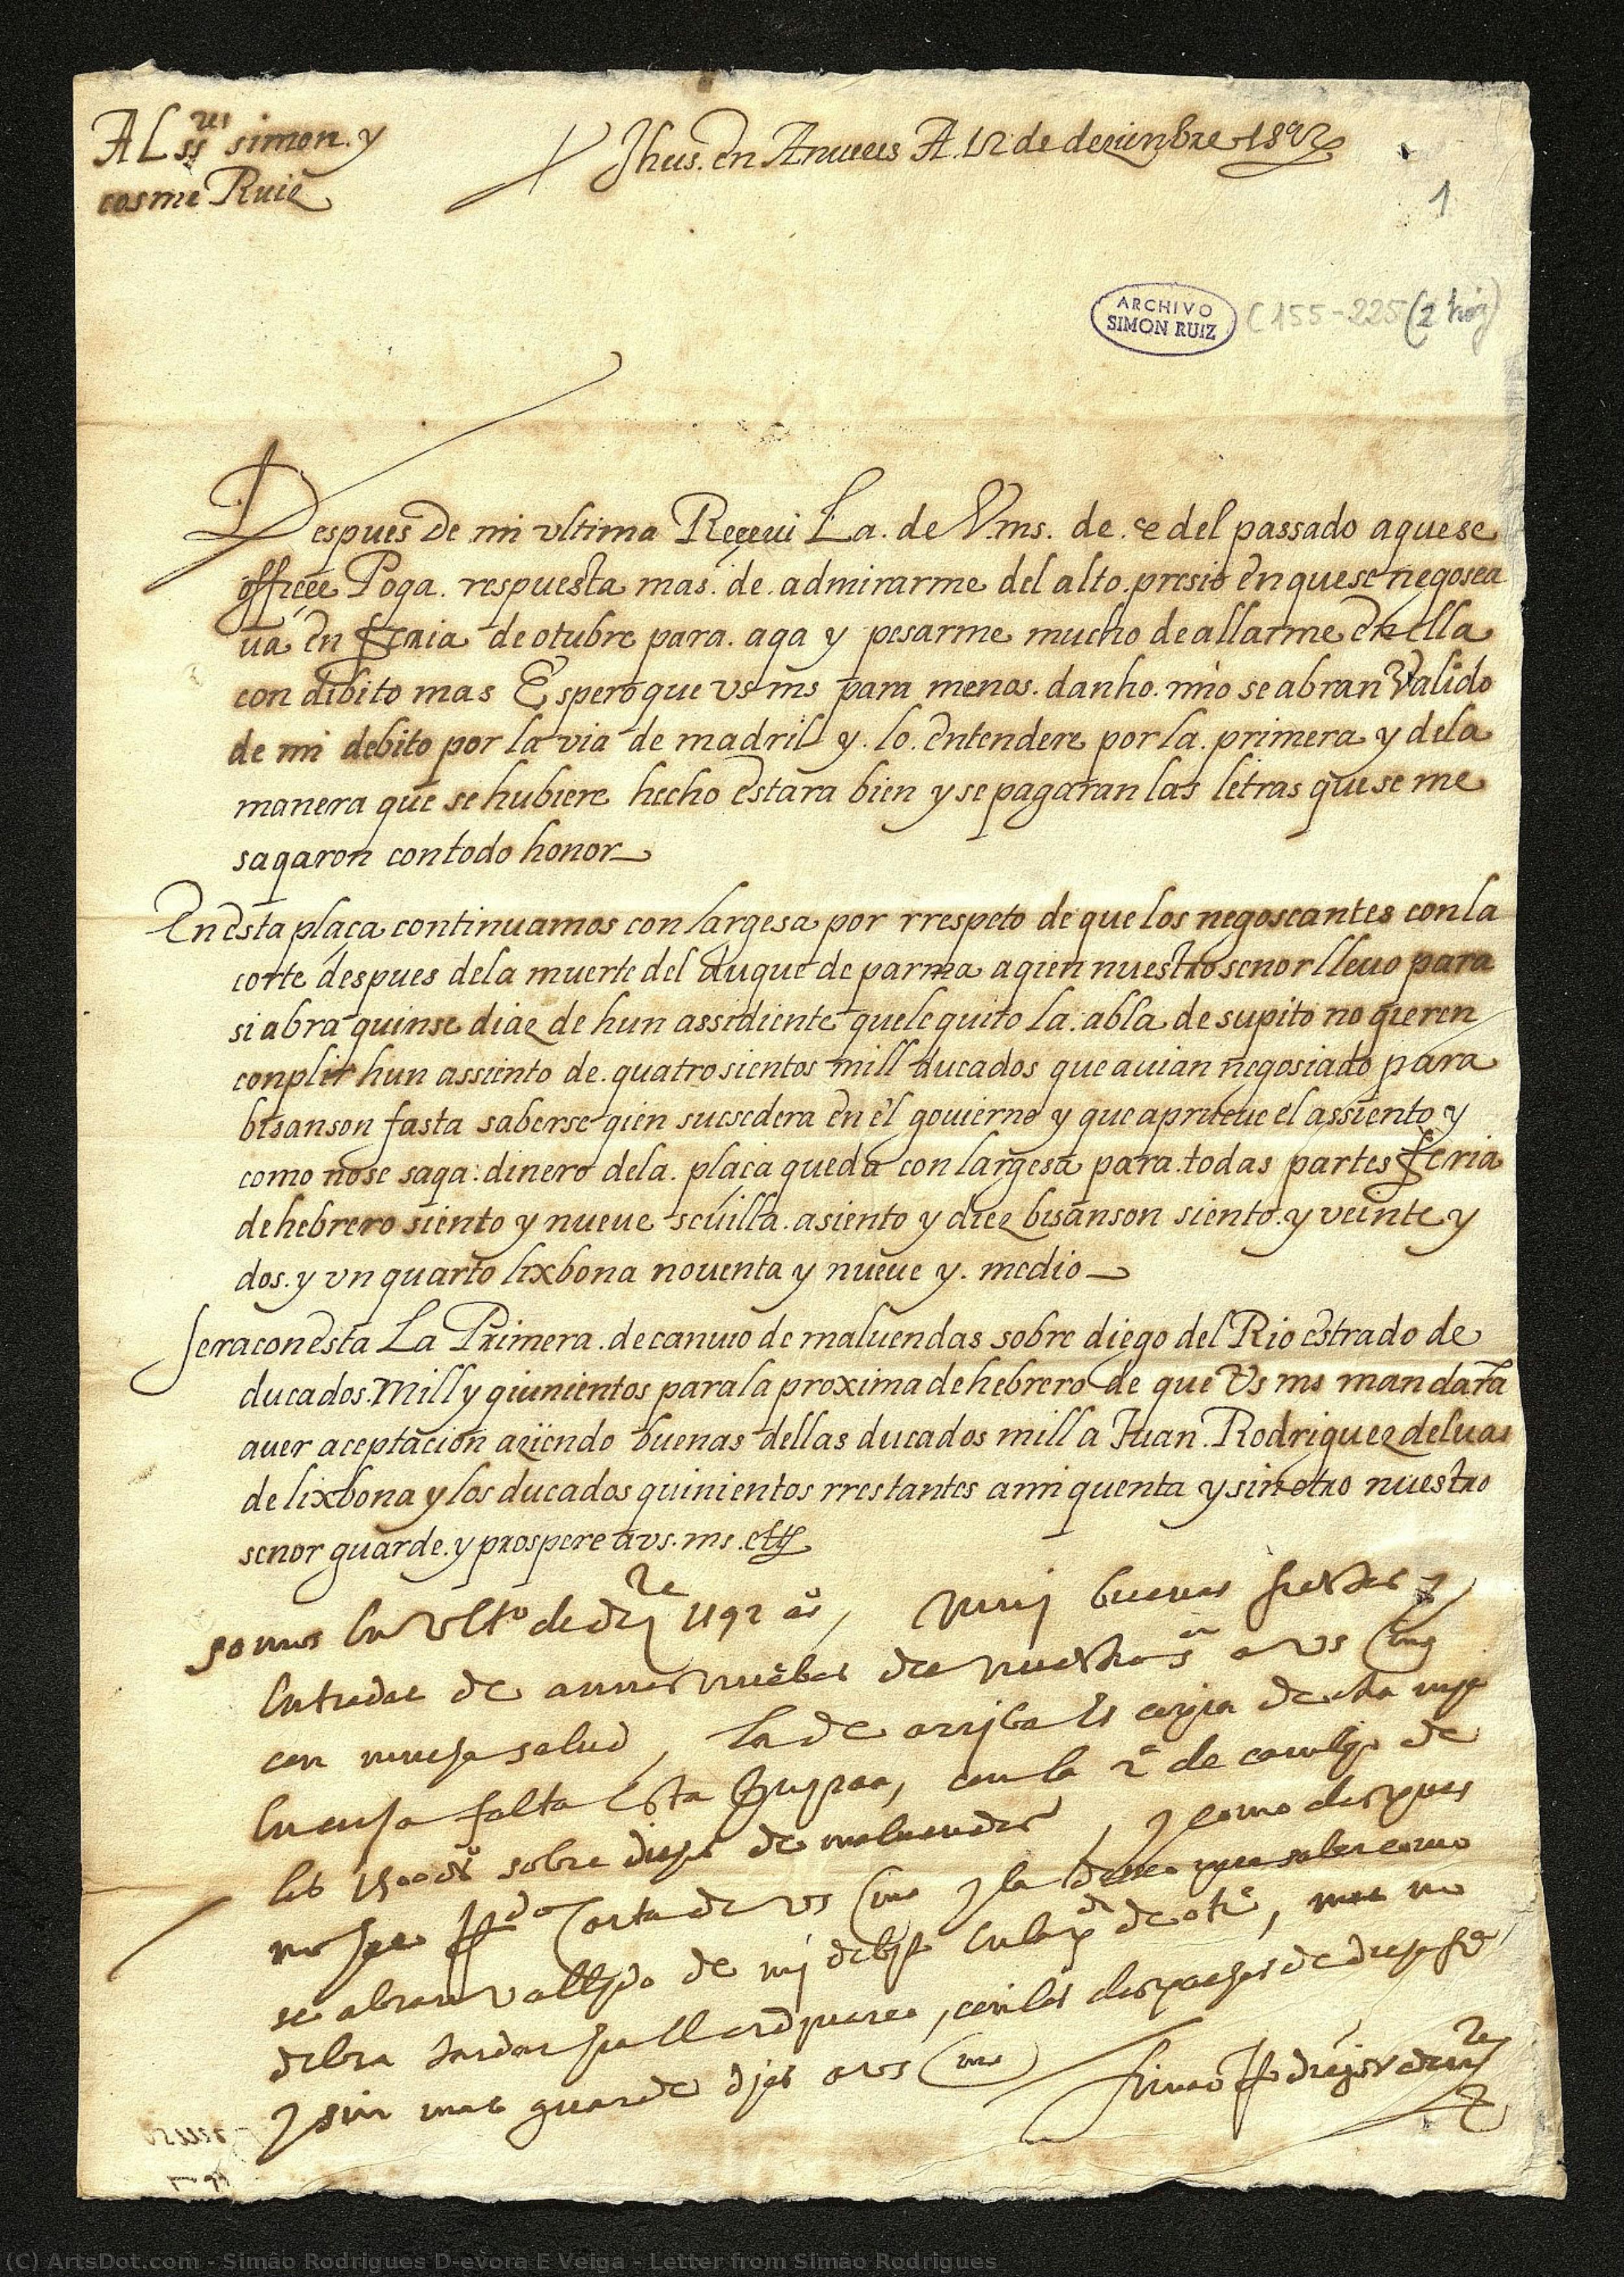 A L ss res simon y
cosme Ruiz
Jhus. en Anveres A 12 de dezienbre 1592
1
ARCHIVO
SIMON RUIZ
C 155-225 (2 hoj)
Despues De mi vltima Reçevi La. de V.ms. de. del passado aquese
offreçe Poqa. respuesta mas. de. admirarme del alto. presio en que se negosea
ua en Feria de otubre para. aqa y pesarme mucho de allarme en ella
con debito mas Espero que vs ms para menos. danho. mio se abran valido
de mi debito por la via de madril y. lo. entendere por la. primera y dela
manera que se hubiere hecho estara bien y se pagaran las letras que se me
saqaron con todo honor
En esta plaça continuamos con largesa por rrespeto de que los negoseantes con la
corte despues dela muerte del duque de parma aqien nuestro senor lleuo para
si abra quinse diaz de hun assidiente quele quito la. abla de supito no qieren
conplir hun assiento de. quatrosientos mill ducados que auian negosiado para
bisanson fasta saberse qien susedera en el gouierno y que aprueue el assiento y
como nose saqa: dinero dela. plaça queda con largesa para. todas partes Feria
de hebrero siento y nueue seuilla. asiento y diez bisanson siento. y veinte y
dos. y vn quarto lixbona nouenta y nueue y. medio
Sera con esta La Primera. de canvio de maluendas sobre diego del Rio estrado de
ducados. Mill y qiunientos para la proxima de hebrero de que Vs ms mandara
auer aceptacion aziendo buenas dellas ducados mill a Juan. Rodriguez deluas
de lixbona y los ducados quinientos rrestantes a mi quenta y sin otro nuestro
senor guarde. y prospere a vs. ms. etz
somos en vlto de dez re 1592 as, muy buenas fiestas y
entradas de annos nuebos de nuestro sr a vs ms
con mucha salud, la de arriba es copia de otra mya
en cuya falta esta suplira, con la 2a de cambyo de
los 1500 ds sobre diego de maluendas, y como despues
no he Rda Carta de vs ms y la deseo para saber como
se abran vallydo de my debyto en la fa de ote, mas no
debra tardar, con los despachos de
y sin mas guarde dyos a vs ms
Simao Rodrigues deuora